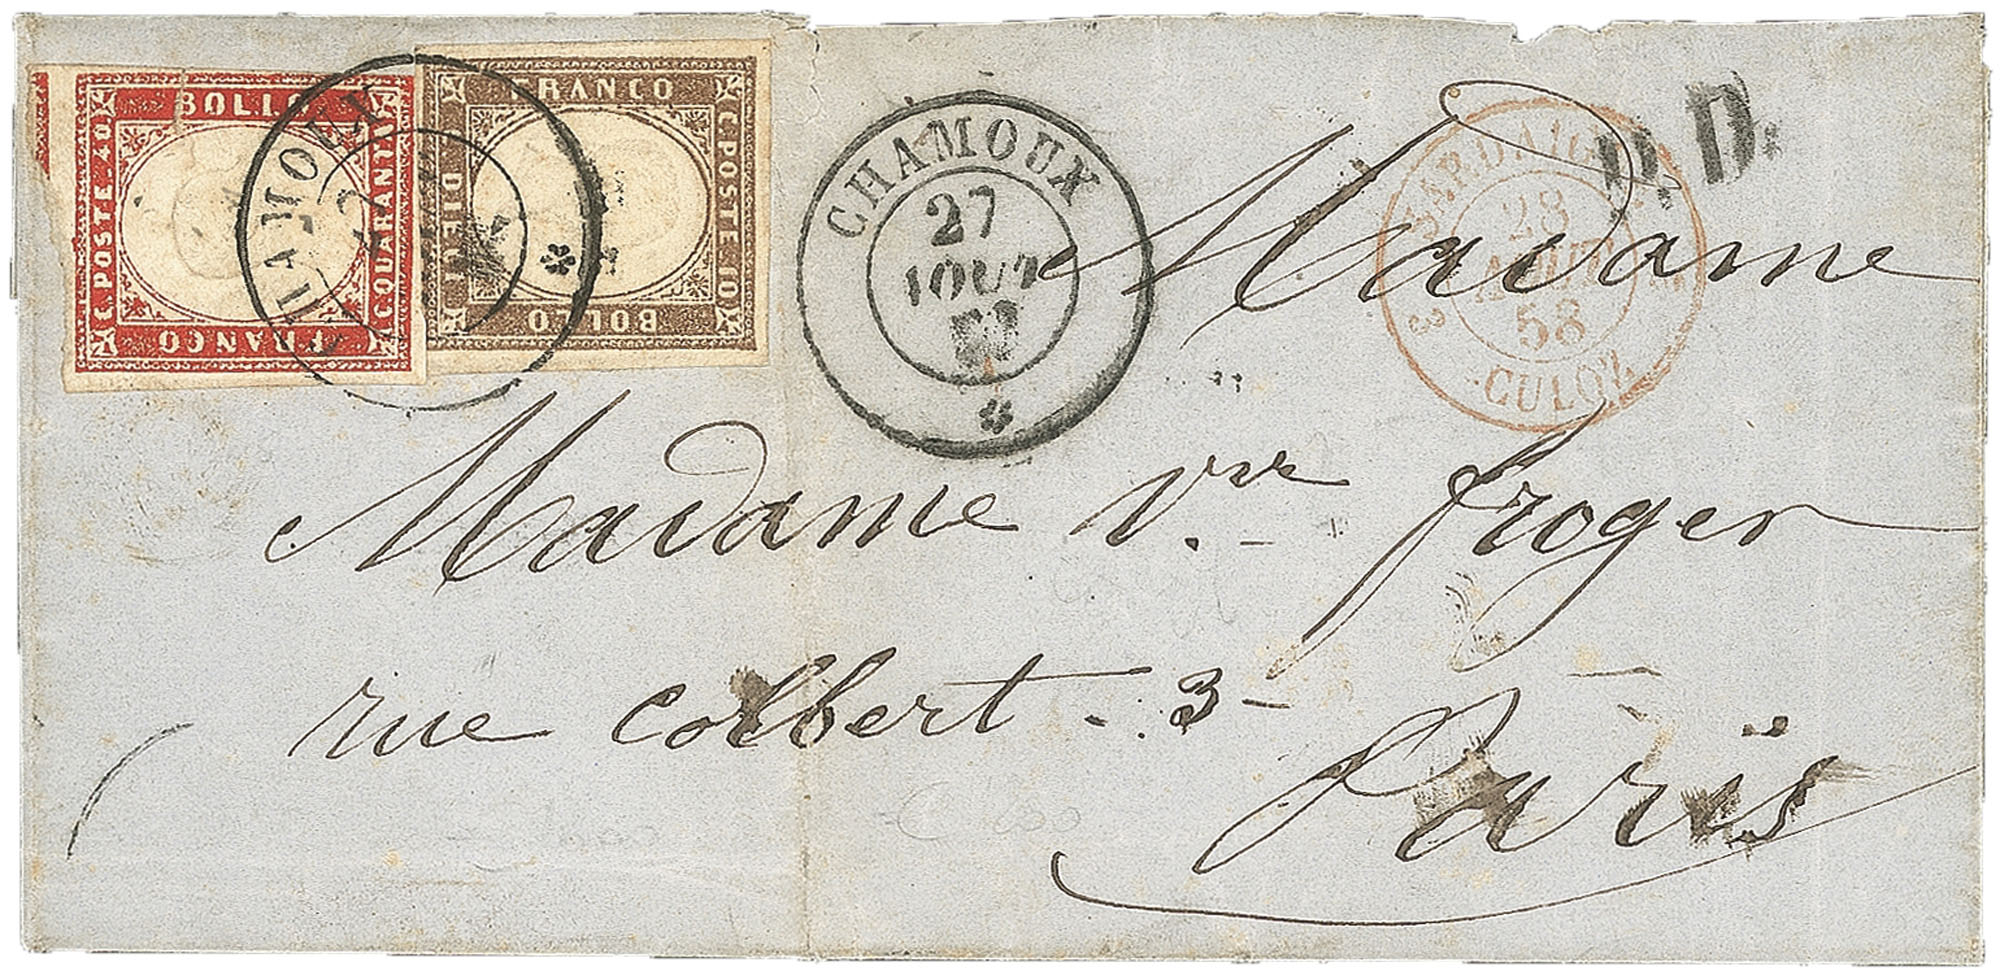 BOLLO
C. POSTE. 40
C. QUARANTA
FRANCO
FRANCO
C. POSTE 10
DIECI
BOLLO
CHAMOUX
27
CHAMOUX
27
AOUT
SARDAIGNE
28
AOUT
58
3 CULOZ
P.D.
Madame
Madame Vve froger
rue colbert - 3 -
Paris